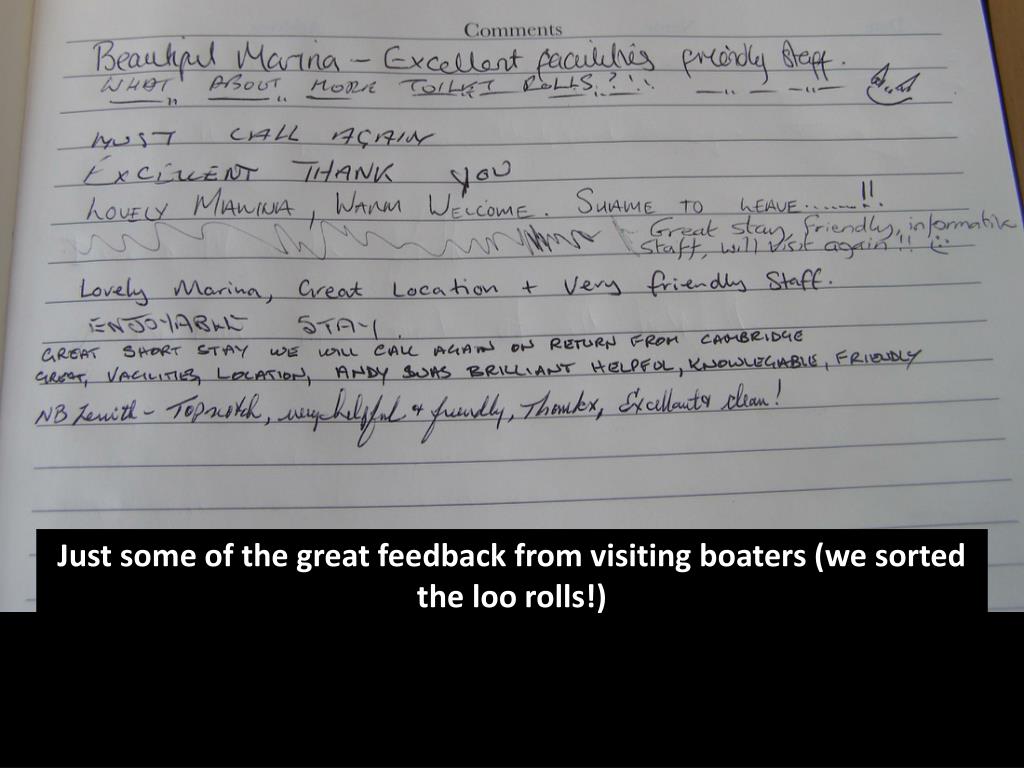 Comments
Beautiful Marina – Excellent facilities friendly Staff.
WHAT ABOUT MORE TOILET ROLLS?!!
MUST CALL AGAIN
EXCELLENT THANK YOU
LOVELY MARINA, WARM WELCOME. SHAME TO LEAVE.......!!
Great stay, friendly, informative
staff, will visit again!! :)
Lovely Marina, Great Location + Very friendly Staff.
ENJOYABLE STAY.
GREAT SHORT STAY WE WILL CALL AGAIN ON RETURN FROM CAMBRIDGE
GREAT, VACILITIES, LOCATION, ANDY WAS BRILLIANT HELPFUL, KNOWLEGABLE, FRIENDLY
NB Zenith – Topnotch, very helpful & friendly, Thanks, Excellent & clean!
Just some of the great feedback from visiting boaters (we sorted
the loo rolls!)